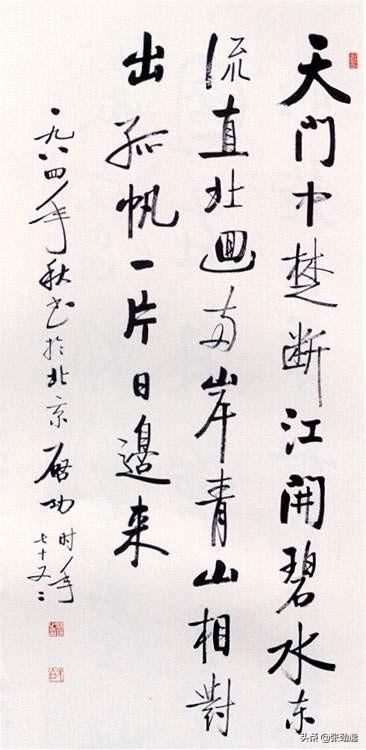 天門中楚断江開碧水东
流直北迴两岸青山相對
出孤帆一片日邊来
一九八四年秋书於北京 启功 时年
七十又二
头条 @张劲逸